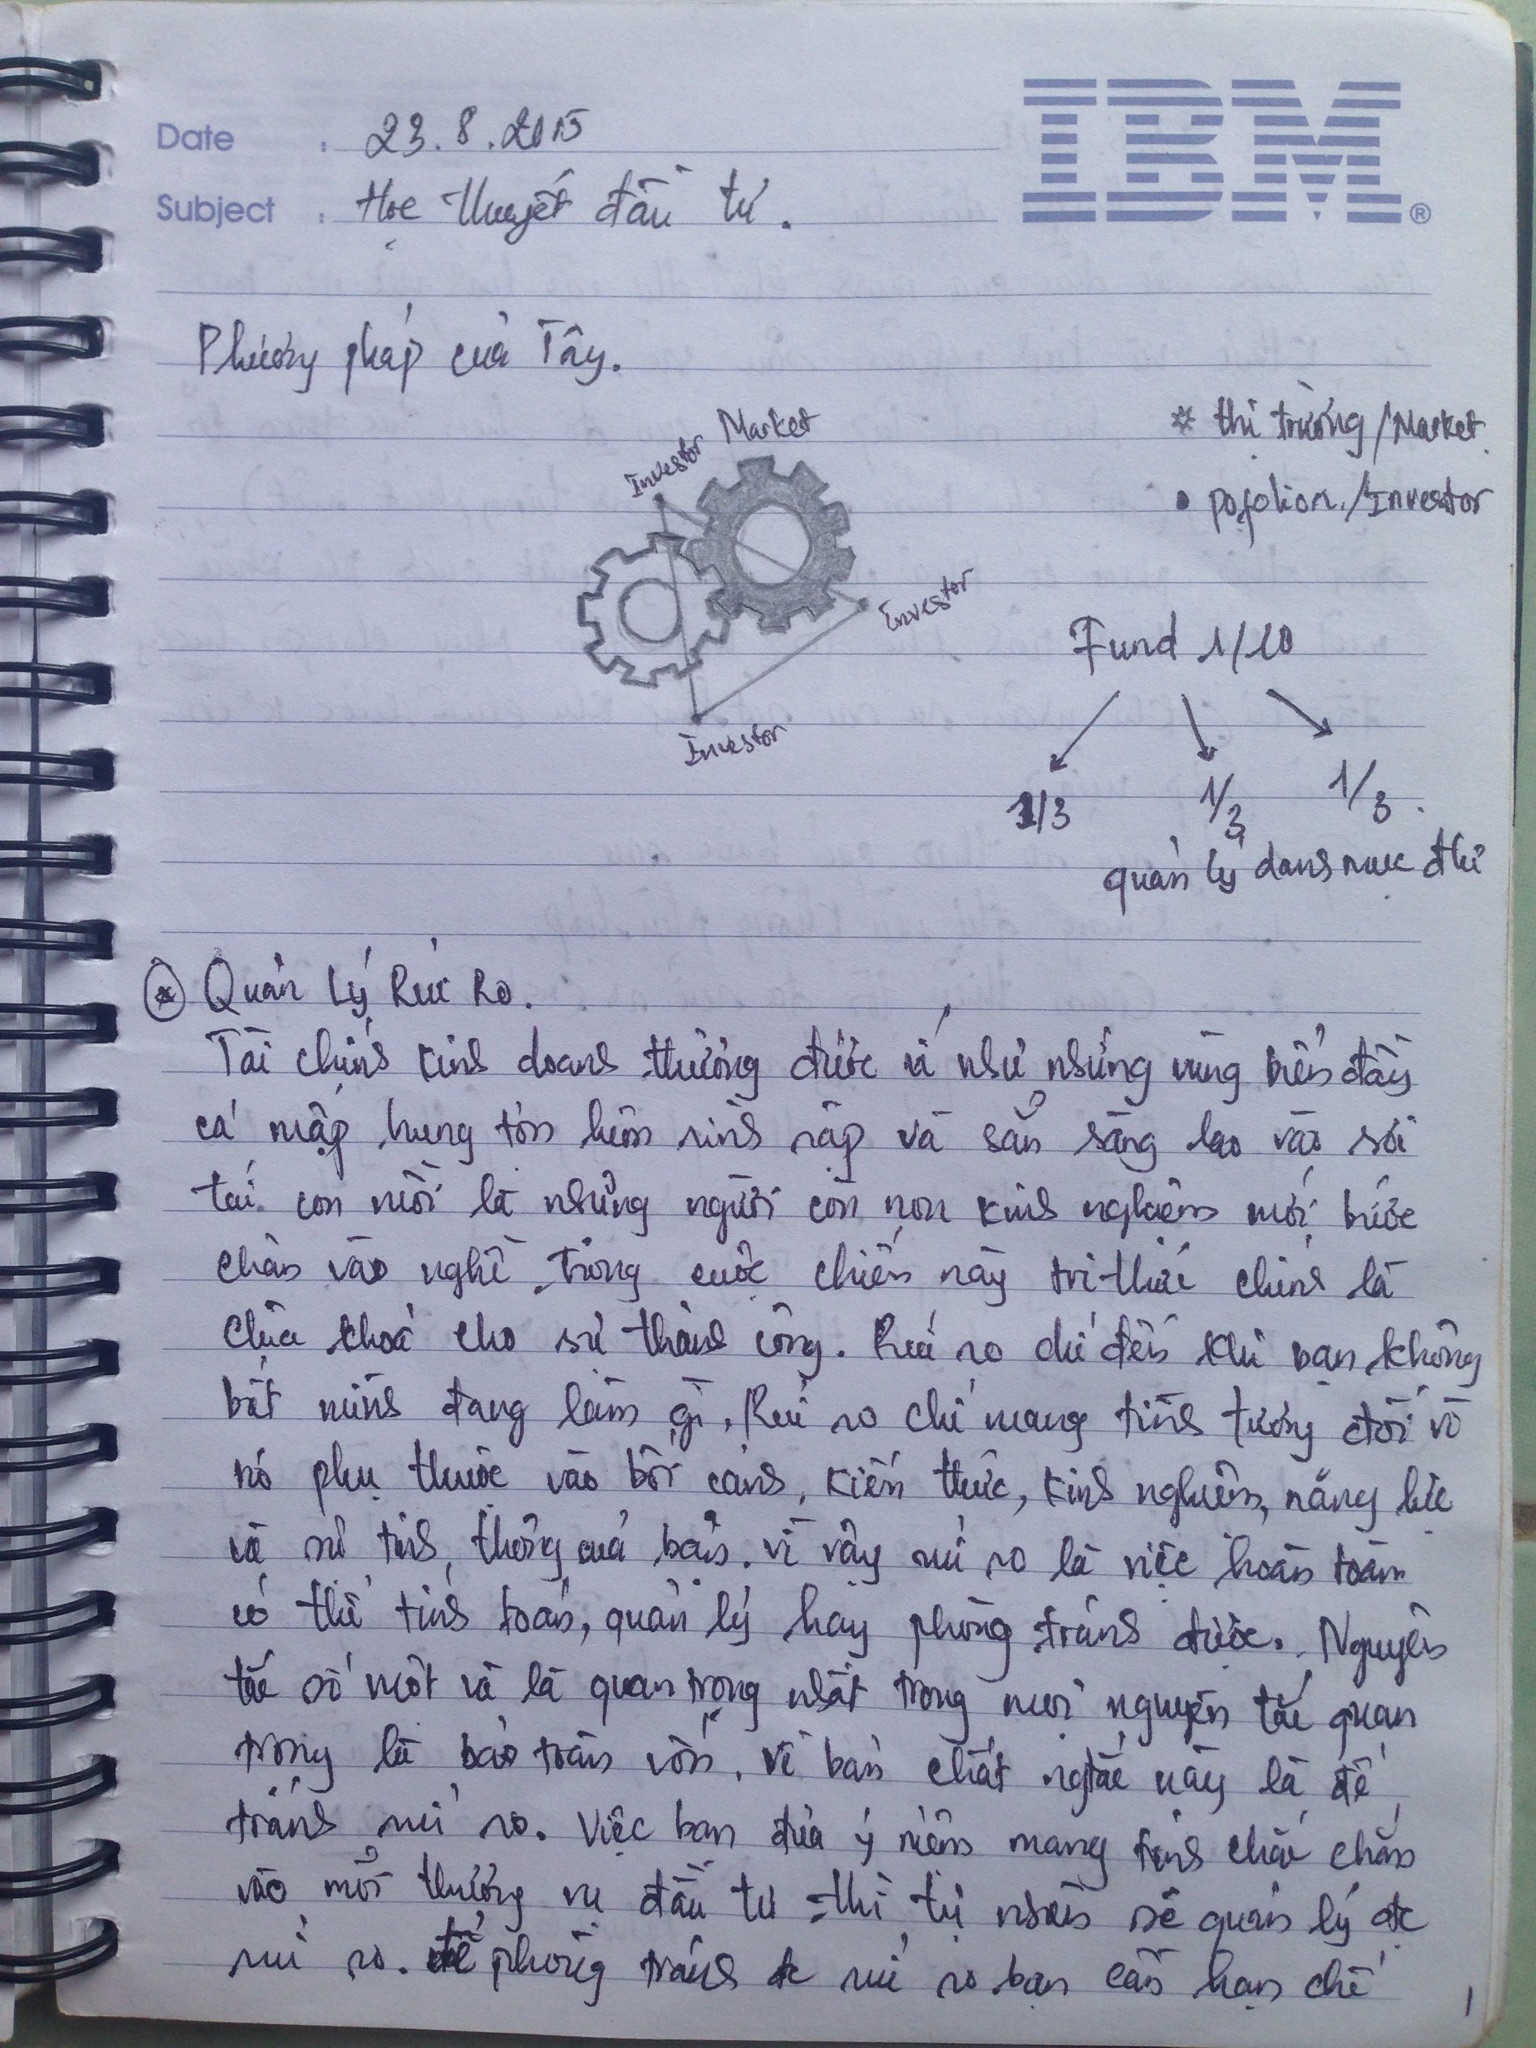 IBM®
Date : 23.8.2015
Subject : Học thuyết đầu tư.
Phương pháp của Tây.
Market
Investor
Investor
Investor
* thị trường/Market
• pofolion./Investor
Fund 1/10
1/3 1/3 1/3.
quản lý danh mục đtư
* Quản Lý Rủi Ro.
Tài chính kinh doanh thường được ví như những vùng biển đầy
cá mập hung tợn luôn rình rập và sẵn sàng lao vào sơi
tái con mồi là những người còn non kinh nghiệm mới bước
chân vào nghề trong cuộc chiến này tri thức chính là
chìa khoá cho sự thành công. Rủi ro chỉ đến khi bạn không
biết mình đang làm gì. Rủi ro chỉ mang tính tương đối vì
nó phụ thuộc vào bối cảnh, kiến thức, kinh nghiệm, năng lực
và sự tinh thông của bạn. vì vậy rủi ro là việc hoàn toàn
có thể tính toán, quản lý hay phòng tránh được. Nguyên
tắc số một và là quan trọng nhất trong mọi nguyên tắc quan
trọng là bảo toàn vốn. Về bản chất ngtắc này là để
tránh rủi ro. Việc bạn đưa ý niệm mang tính chắc chắn
vào mỗi thương vụ đầu tư thì tự nhiên sẽ quản lý đc
rủi ro. để phòng tránh đc rủi ro bạn cần hạn chế
1